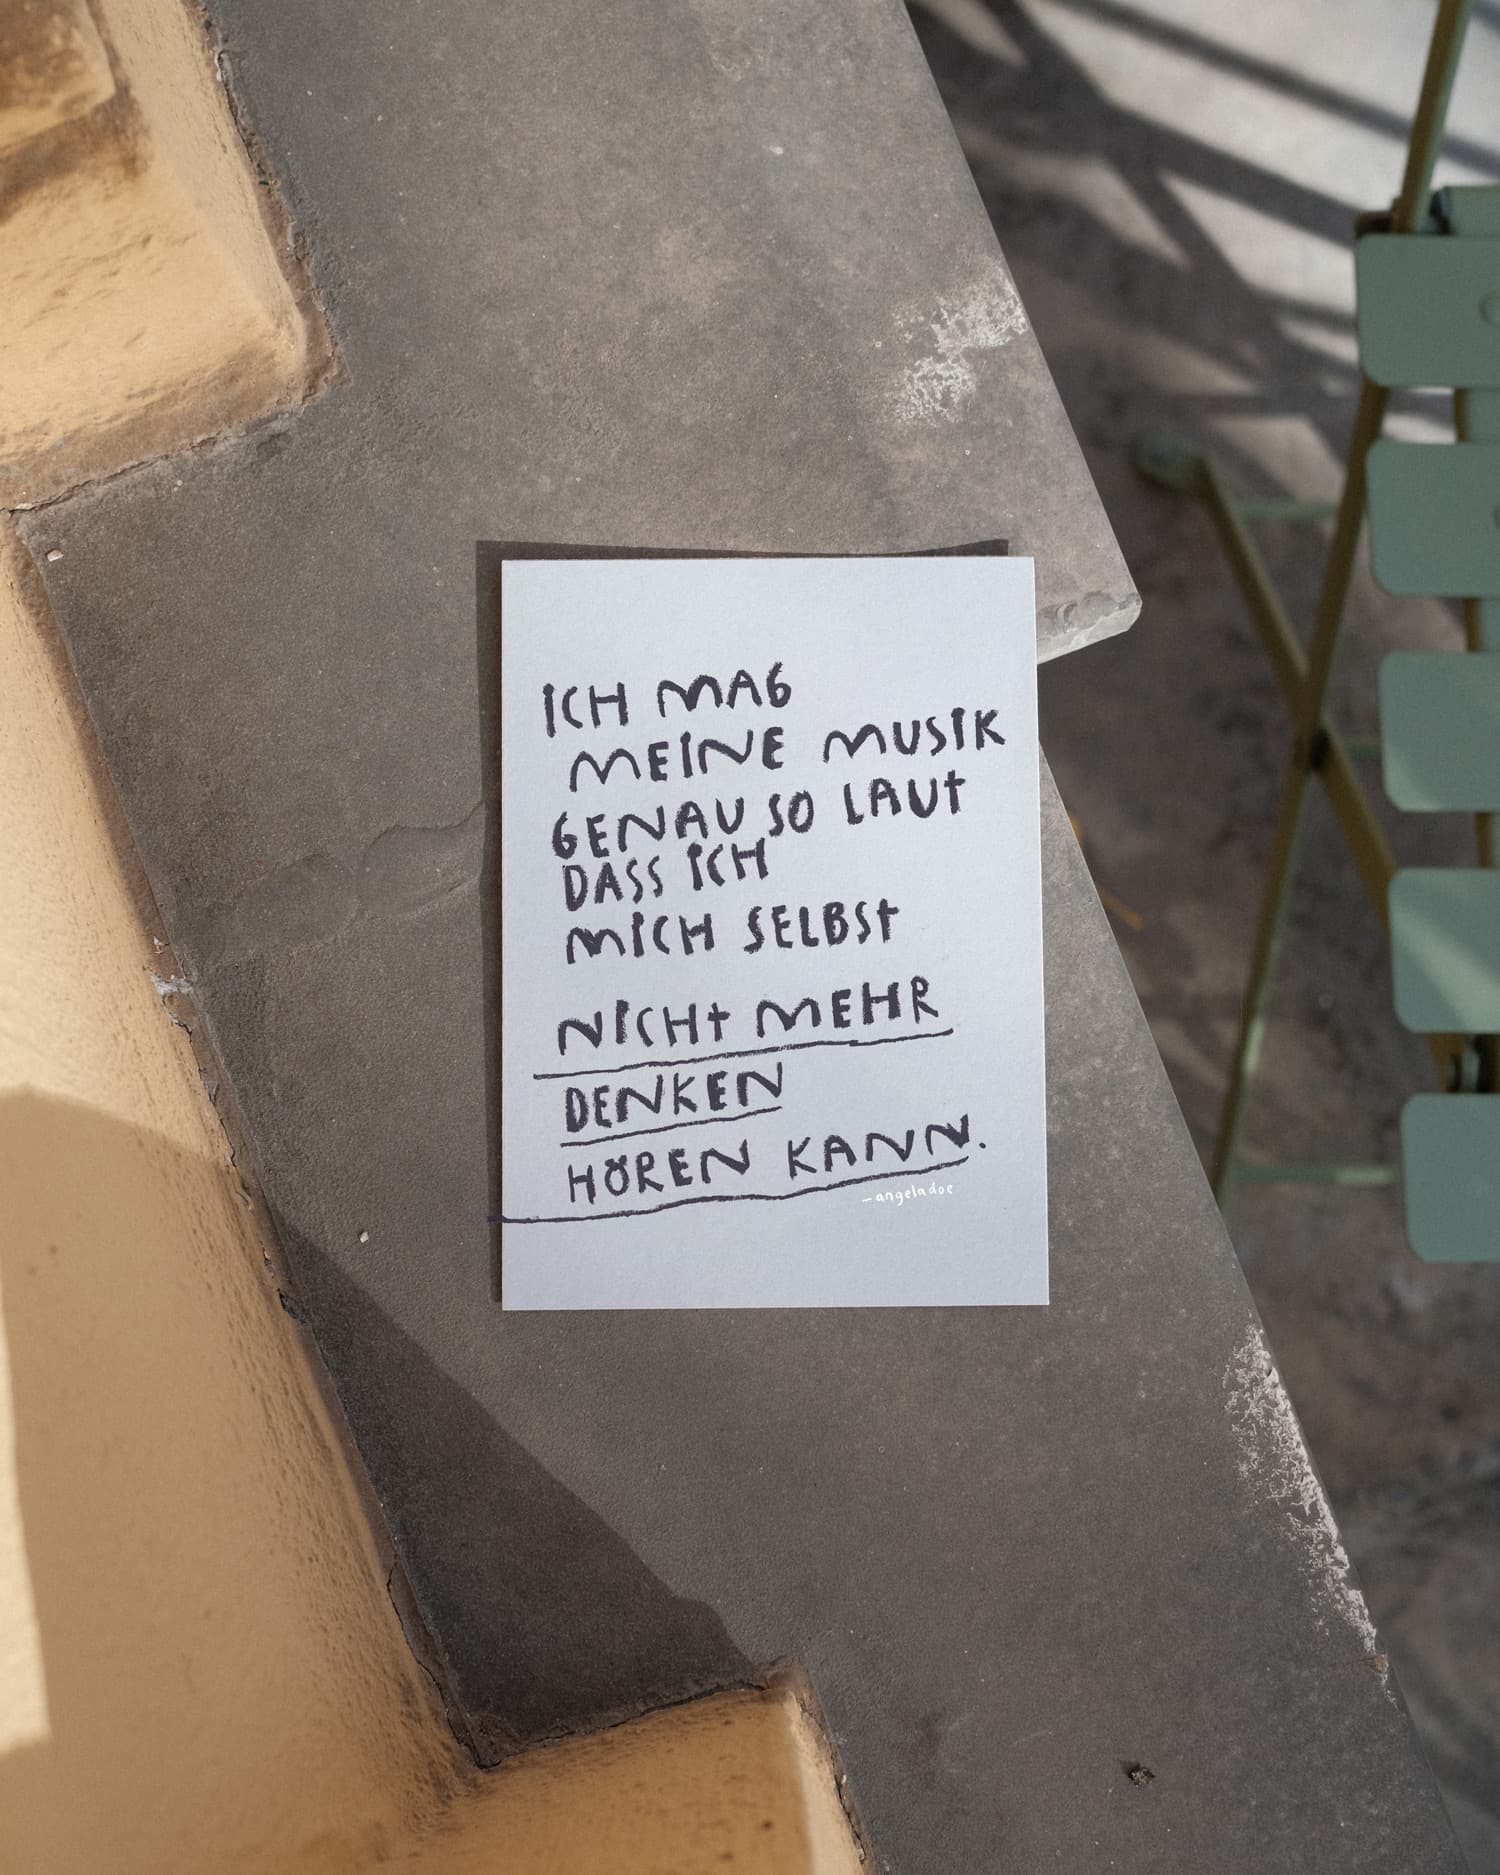 ICH MAG
MEINE MUSIK
GENAU SO LAUT
DASS ICH
MICH SELBST
NICHT MEHR
DENKEN
HÖREN KANN.
—angeladoe